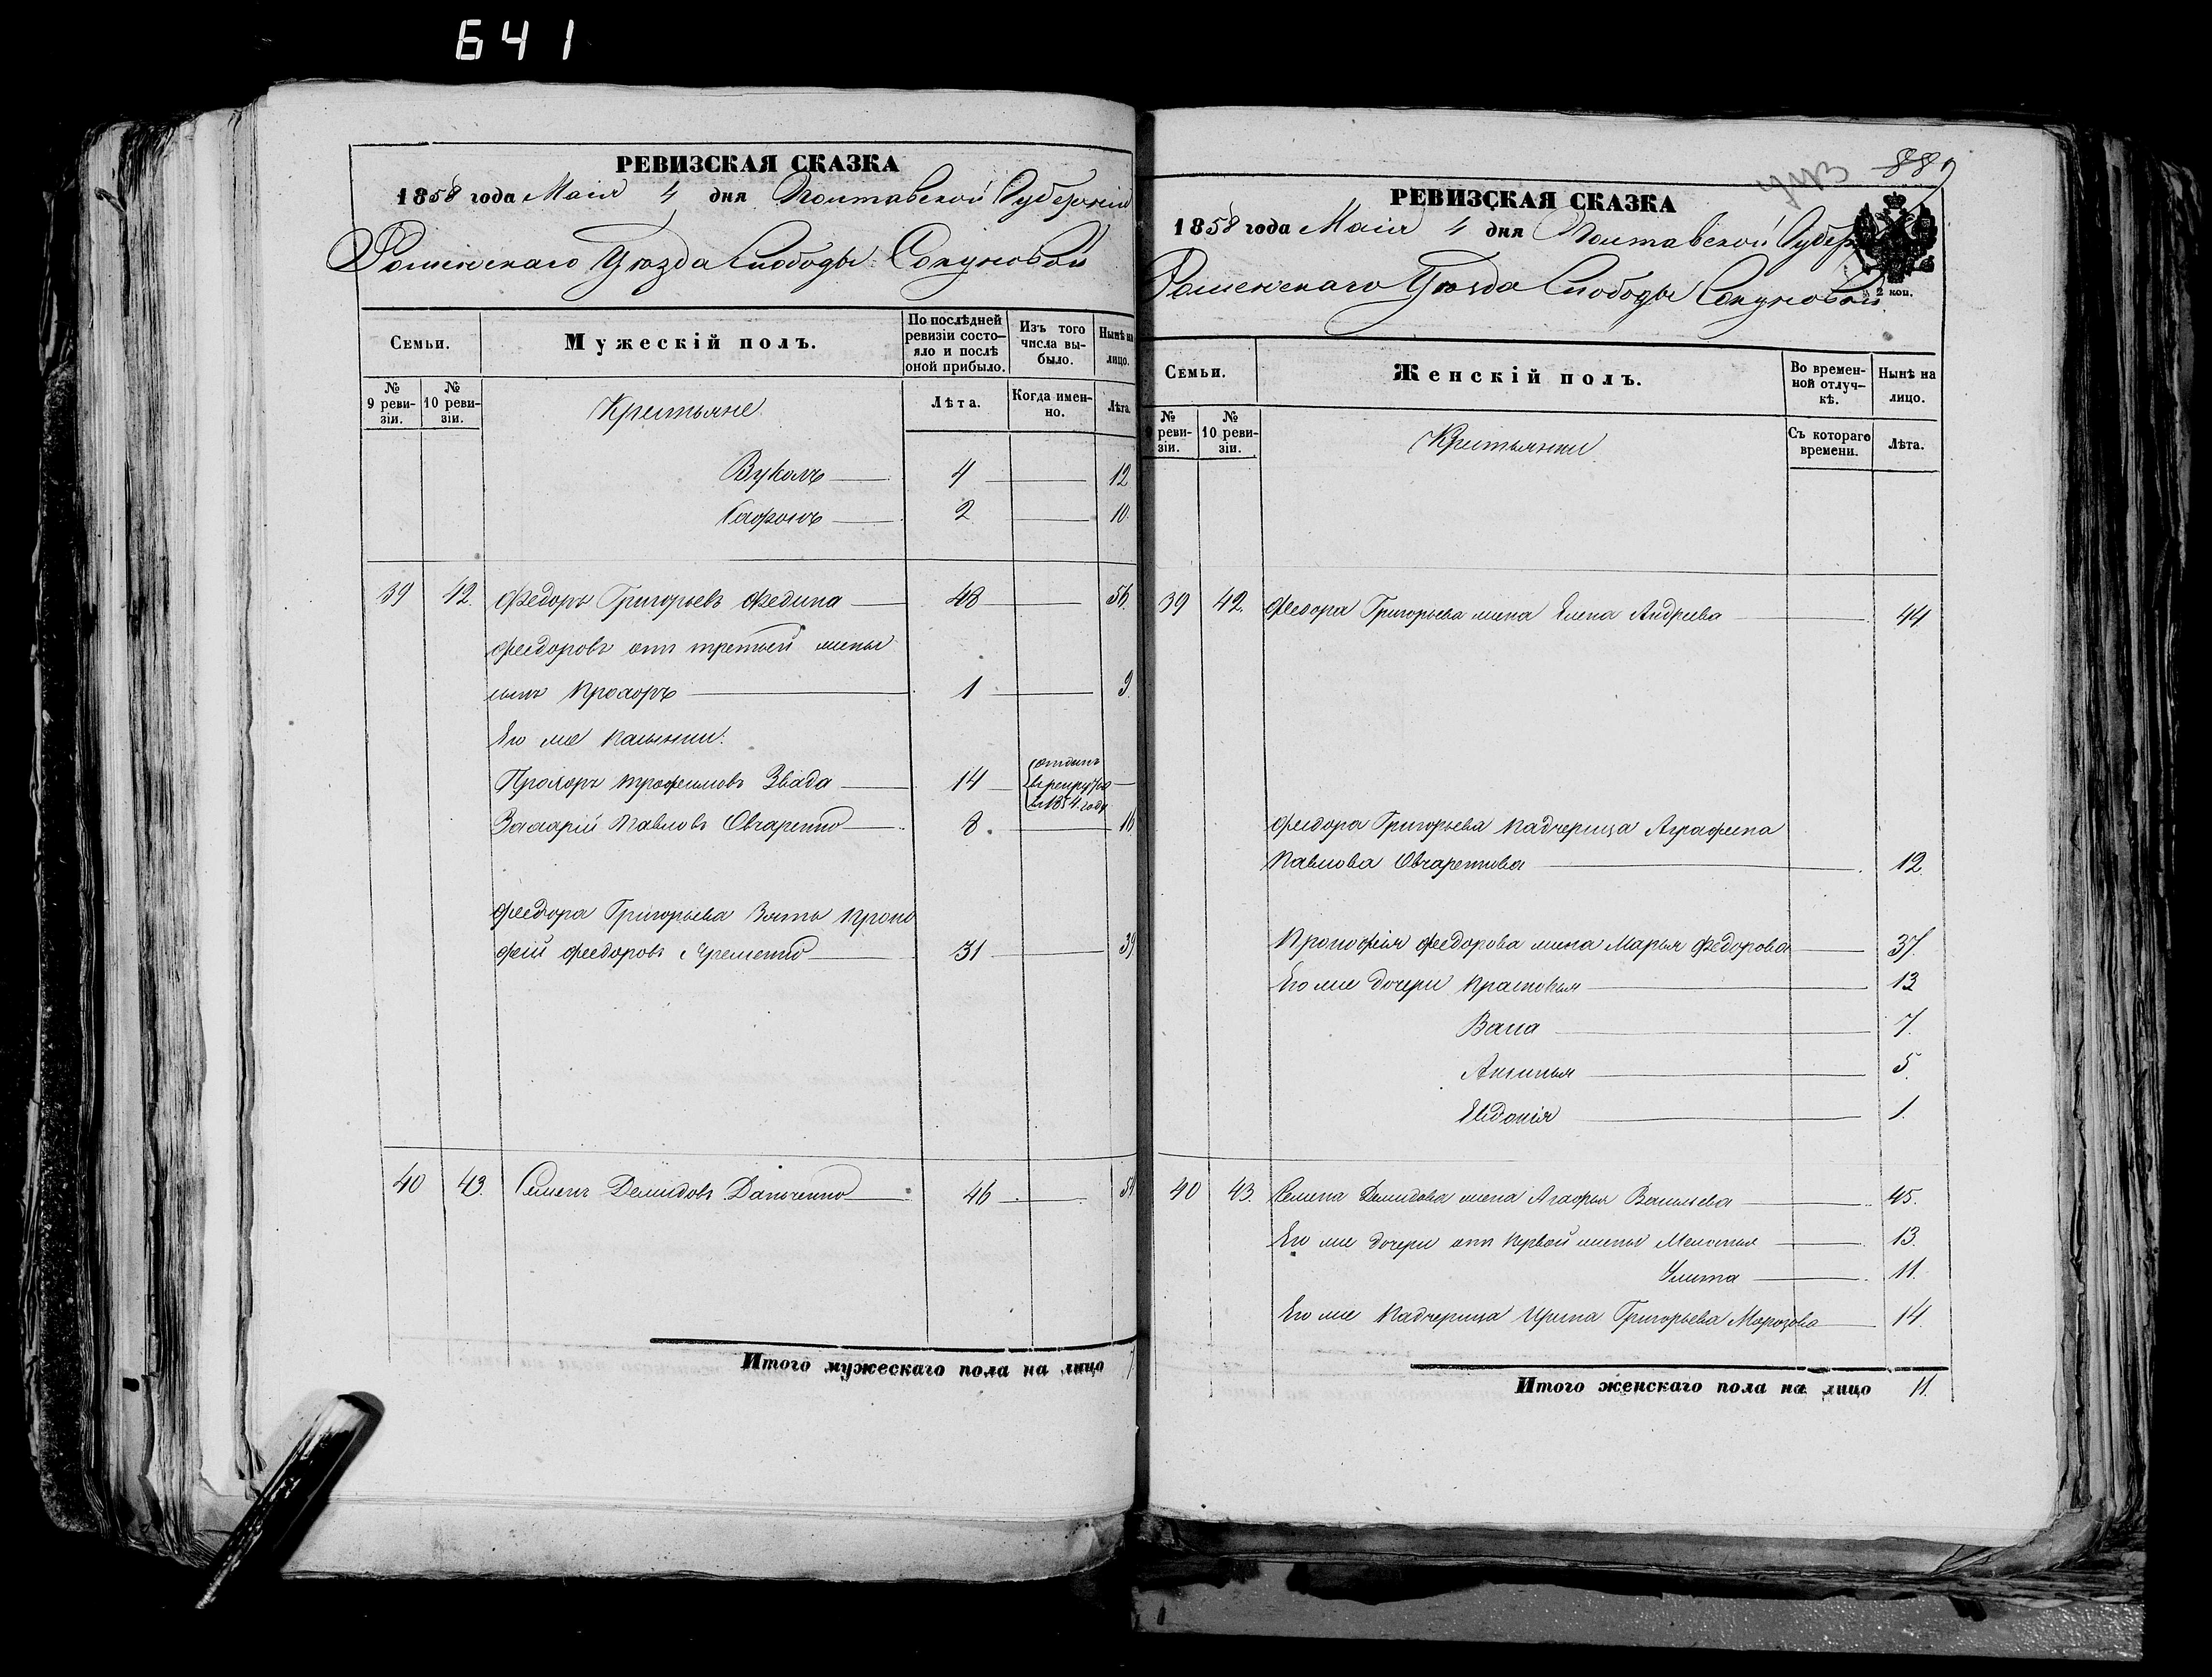 641
РЕВИЗСКАЯ СКАЗКА
1858 года Маія 4 дня Полтавской Губерніи
Роменскаго Уѣзда Слободы
Семьи.
Мужескій полъ.
По послѣдней ревизіи состо-
яло и послѣ оной прибыло.
Изъ того числа вы-
было.
Нынѣ на лицо.
№ 9 реви-
зіи.
№ 10 реви-
зіи.
Крестьяне
Лѣта.
Когда имен-
но.
Лѣта.
Вуколъ 4 12
Сафонъ 2 10
39 42. Федоръ Григорьевъ Федина 48 56
Федоровъ отъ третьей жены
сынъ Прохоръ 1 9
Его же пасынки.
Прохоръ Трофимовъ Звада 14 отданъ
въ рекруты
въ 1854 году
Захарій Павловъ Овчаренко 8. 16
Федора Григорьева Зять Проко
фій Федоровъ Яременко 31 39
40 43. Семенъ Демидовъ 46 54
Итого мужескаго пола на лицо 7
889
РЕВИЗСКАЯ СКАЗКА
1858 года Маія 4 дня Полтавской Губер
Роменскаго Уѣзда Слободы
2 коп.
Семьи.
Женскій полъ.
Во времен-
ной отлуч-
кѣ.
Нынѣ на лицо.
№ реви-
зіи.
№ 10 реви-
зіи.
Крестьянки
Съ котораго времени.
Лѣта.
39 42. Федора Григорьева жена Елена Андреева 44
Федора Григорьева падчерица Аграфена
Павлова Овчаренкова 12
Прокофія Федорова жена Марья Федорова 37.
Его же дочери Прасковья 13
Васса 7.
Аксинья 5.
Евдокія 1.
40 43. Семена Демидова жена Агафья Васильева 45.
Его же дочери отъ первой жены Меланья 13.
Улита 11.
Его же падчерица Ирина Григорьева Морозова 14.
Итого женскаго пола на лицо 11.